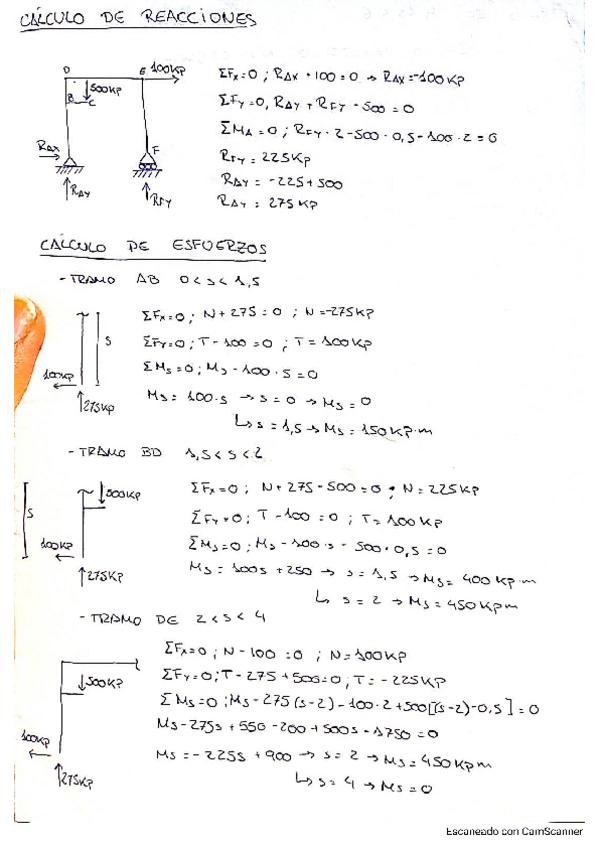 CÁLCULO DE REACCIONES
D E 100KP
500KP
B C
RAX F
RAY RFY
ΣFx=0; RAX + 100 = 0 → RAX=-100KP
ΣFY=0, RAY + RFY - 500 = 0
ΣMA=0; RFY · 2 - 500 · 0,5 - 100 · 2 = 0
RFY = 225KP
RAY = -225 + 500
RAY = 275 KP
CÁLCULO DE ESFUERZOS
- TRAMO AB 0 < s < 1,5
S
100KP
275KP
ΣFx=0; N + 275 = 0; N=-275KP
ΣFY=0; T - 100 = 0; T = 100KP
ΣMs=0; Ms - 100 · s = 0
Ms = 100·s → s = 0 → Ms = 0
↳ s = 1,5 → Ms = 150KP·m
- TRAMO BD 1,5 < s < 2
S
500KP
100KP
275KP
ΣFx=0; N + 275 - 500 = 0; N = 225KP
ΣFY=0; T - 100 = 0; T = 100KP
ΣMs=0; Ms - 100·s - 500·0,5 = 0
Ms = 100s + 250 → s = 1,5 → Ms = 400 KP·m
↳ s = 2 → Ms = 450KPm
- TRAMO DE 2 < s < 4
500KP
100KP
275KP
ΣFx=0; N - 100 = 0; N = 100KP
ΣFY=0; T - 275 + 500 = 0; T = -225KP
ΣMs=0; Ms - 275 (s-2) - 100·2 + 500[(s-2) - 0,5] = 0
Ms - 275s + 550 - 200 + 500s - 1750 = 0
Ms = -225s + 900 → s = 2 → Ms = 450KPm
↳ s = 4 → Ms = 0
Escaneado con CamScanner